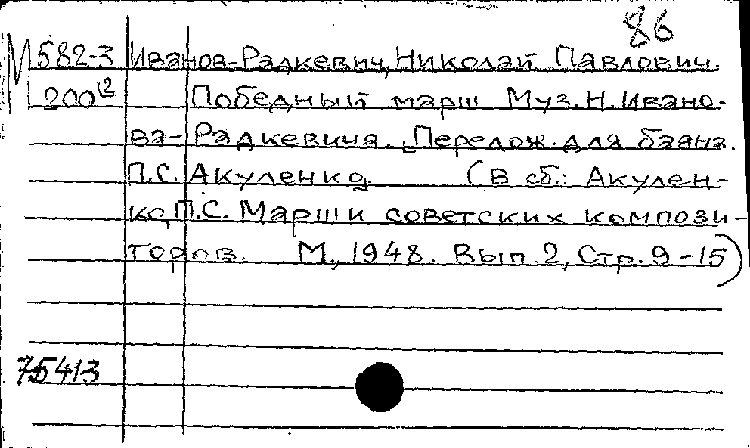 86
М 582-3 Иванов-Радкевич, Николай Павлович.
200(2 Победный марш Муз. Н. Ивано-
ва-Радкевича. Перелож. для баяна.
П.С. Акуленко (В сб.: Акулен-
ко, П.С. Марши советских компози-
торов. М., 1948. Вып 2, Стр. 9-15)
75413